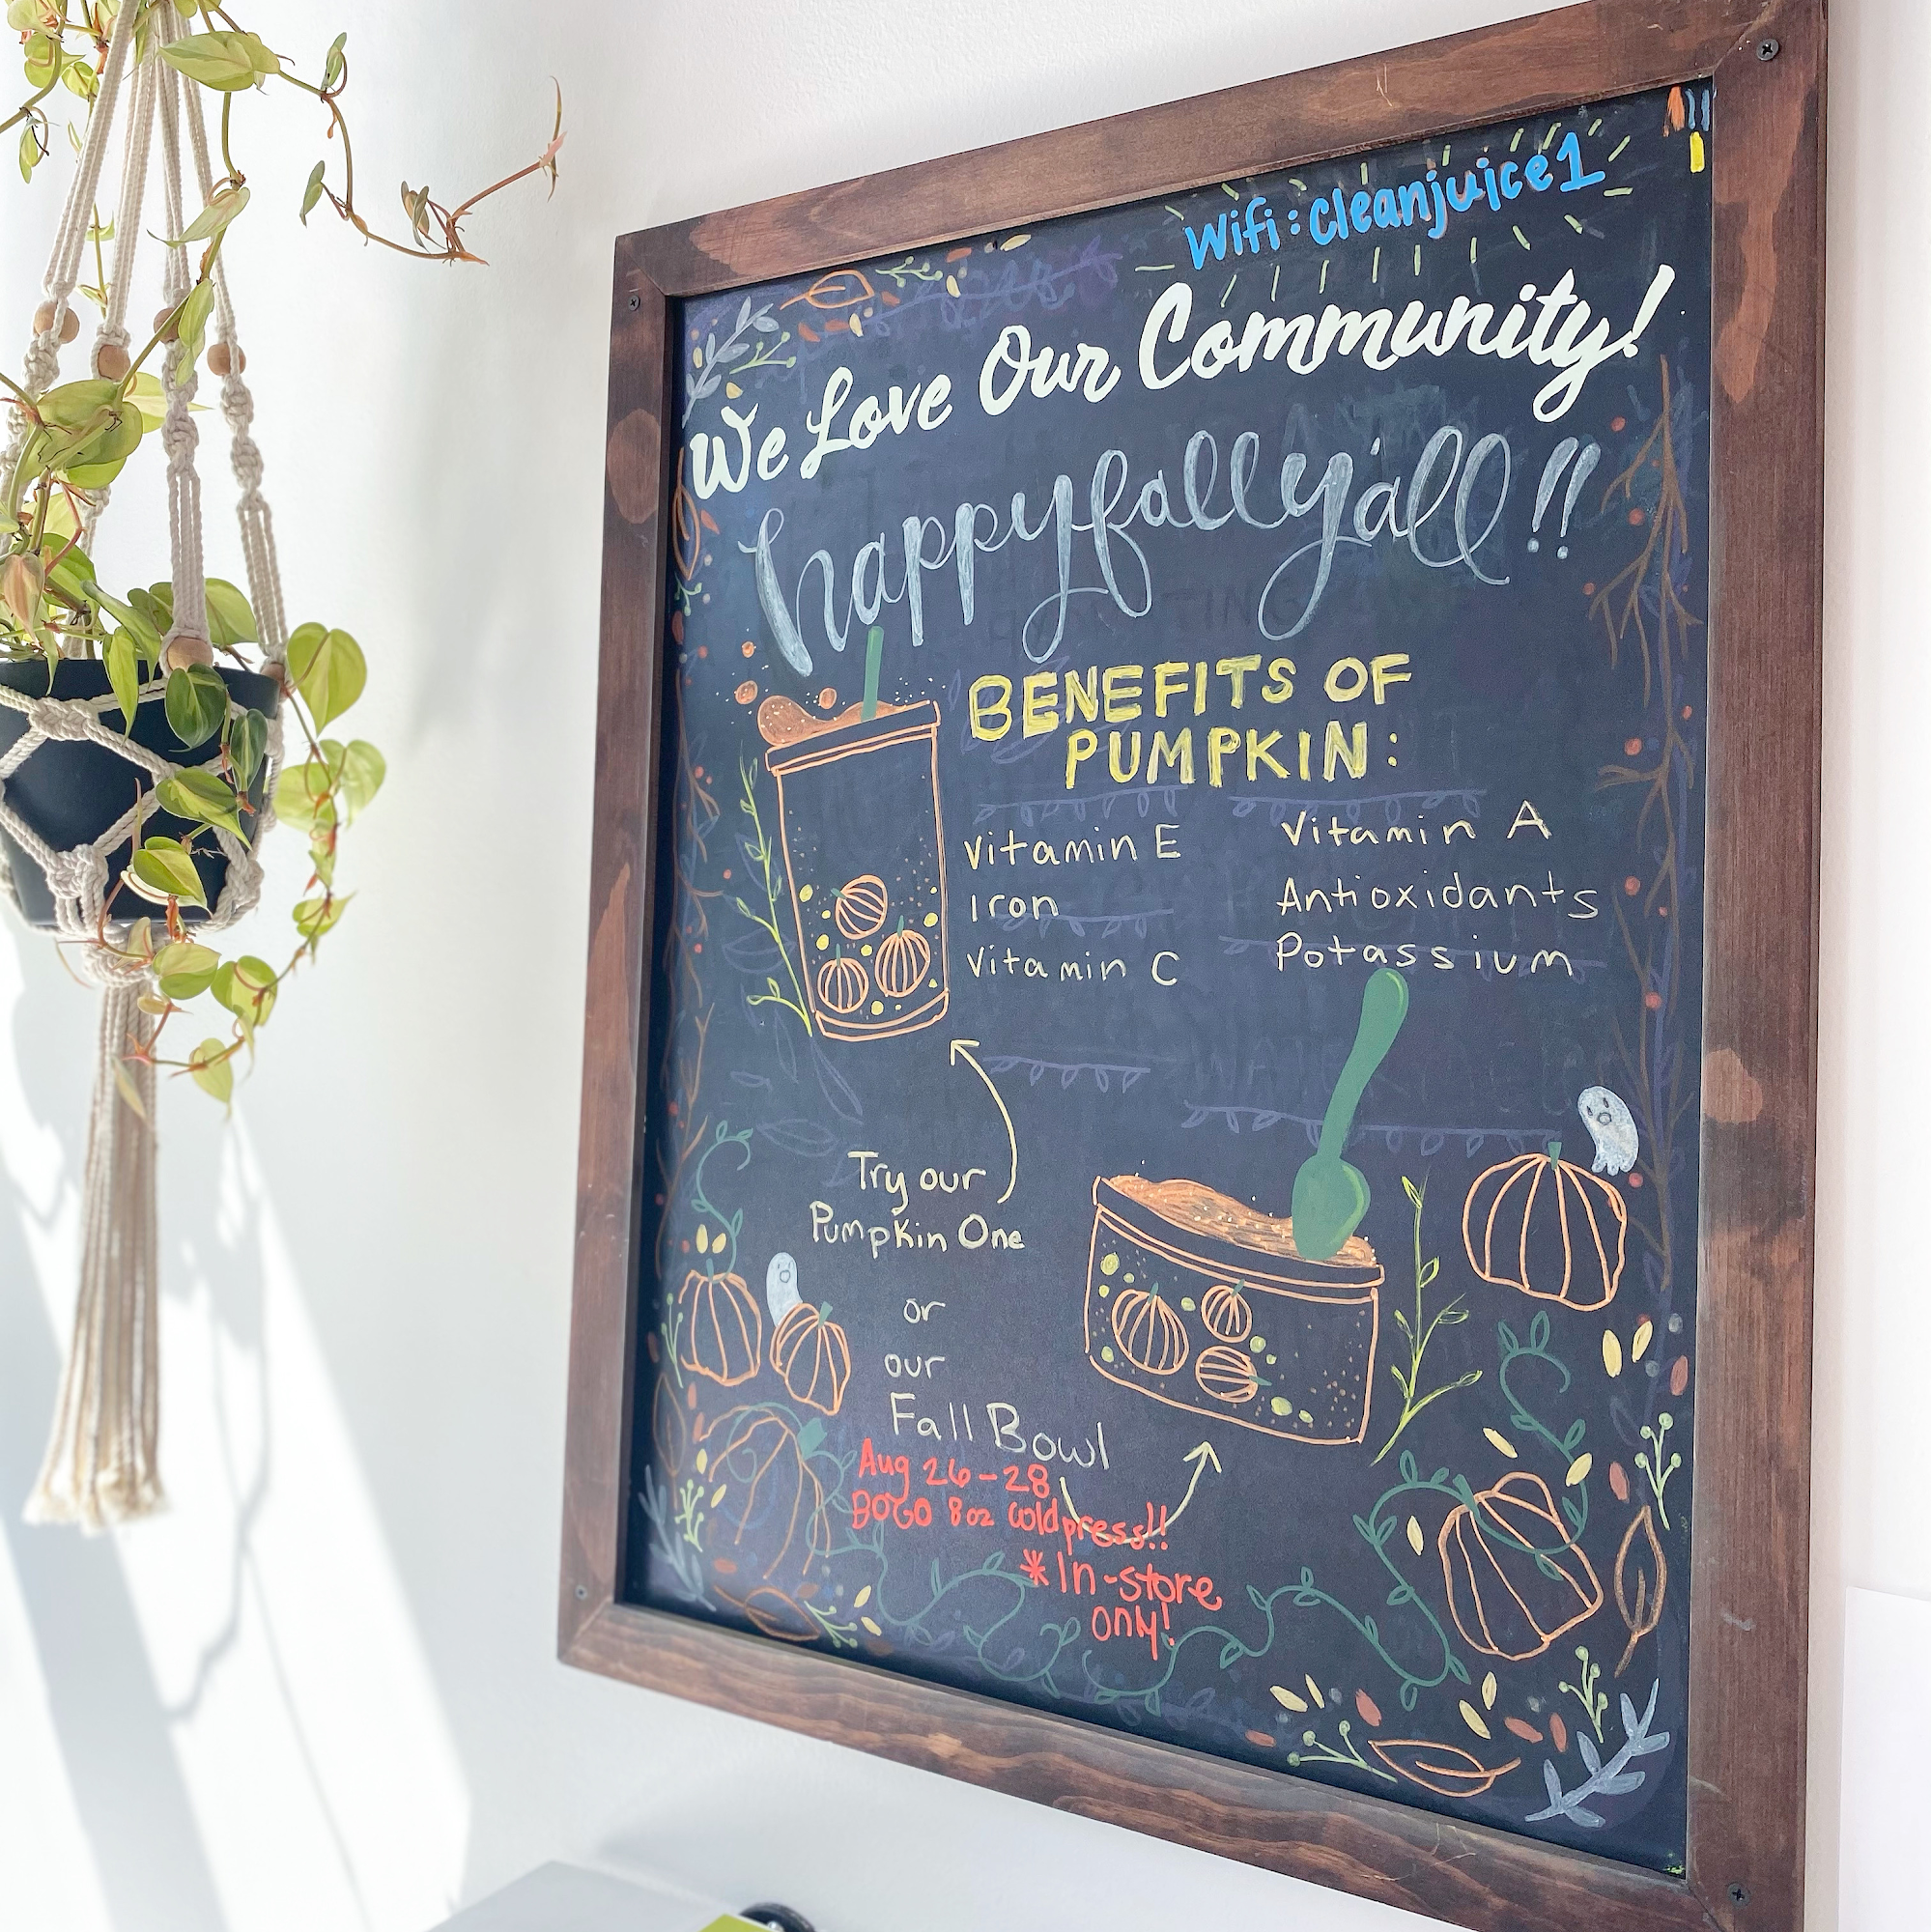 Wifi: cleanjuice1
We Love Our Community!
happy fall y'all!!
BENEFITS OF
PUMPKIN:
Vitamin E
Iron
Vitamin C
Vitamin A
Antioxidants
Potassium
Try our
Pumpkin One
or
our
Fall Bowl
Aug 26-28
BOGO 8oz coldpress!!
*In-store
only!